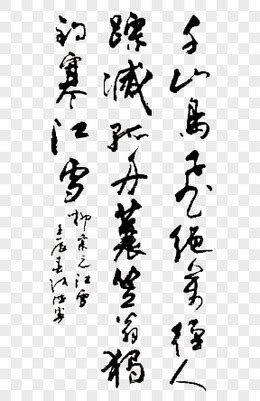 千山鳥飛絕萬徑人
踪滅孤舟蓑笠翁獨
釣寒江雪
柳宗元江雪
壬辰春